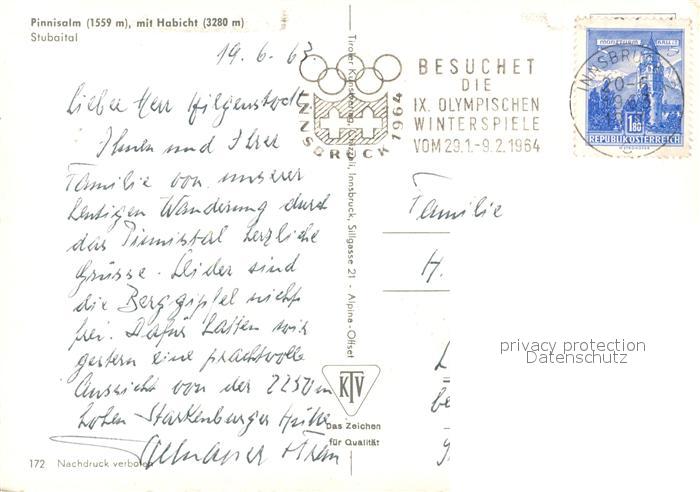 Pinnisalm (1559 m), mit Habicht (3280 m)
Stubaital
19. 6. 63.
Lieber Herr Hilgenstock
Ihnen und Ihrer
Familie von unserer
heutigen Wanderung durch
das Pinnistal herzliche
Grüsse. Leider sind
die Berggipfel nicht
frei. Dafür hatten wir
gestern eine prachtvolle
Aussicht von der 2250 m
hohen Starkenburger Hütte
172 Nachdruck verboten
Tiroler Kunstverlag Chizzali, Innsbruck, Sillgasse 21 - Alpina-Offset
KTV
Das Zeichen
für Qualität
INNSBRUCK 1964
BESUCHET
DIE
IX. OLYMPISCHEN
WINTERSPIELE
VOM 29.1.-9.2.1964
INNSBRUCK
1.80
REPUBLIK ÖSTERREICH
Familie
H.
privacy protection
Datenschutz